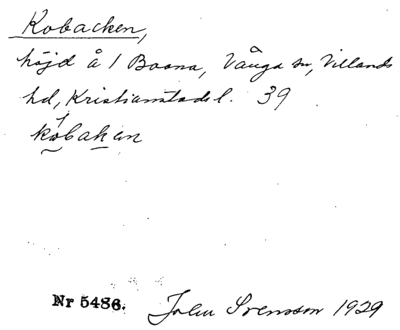 Kobacken,
höjd å 1 Boona, Vånga sn, Villands
hd, Kristianstads l. 39
kobaken
Nr 5486.
John Svensson 1929